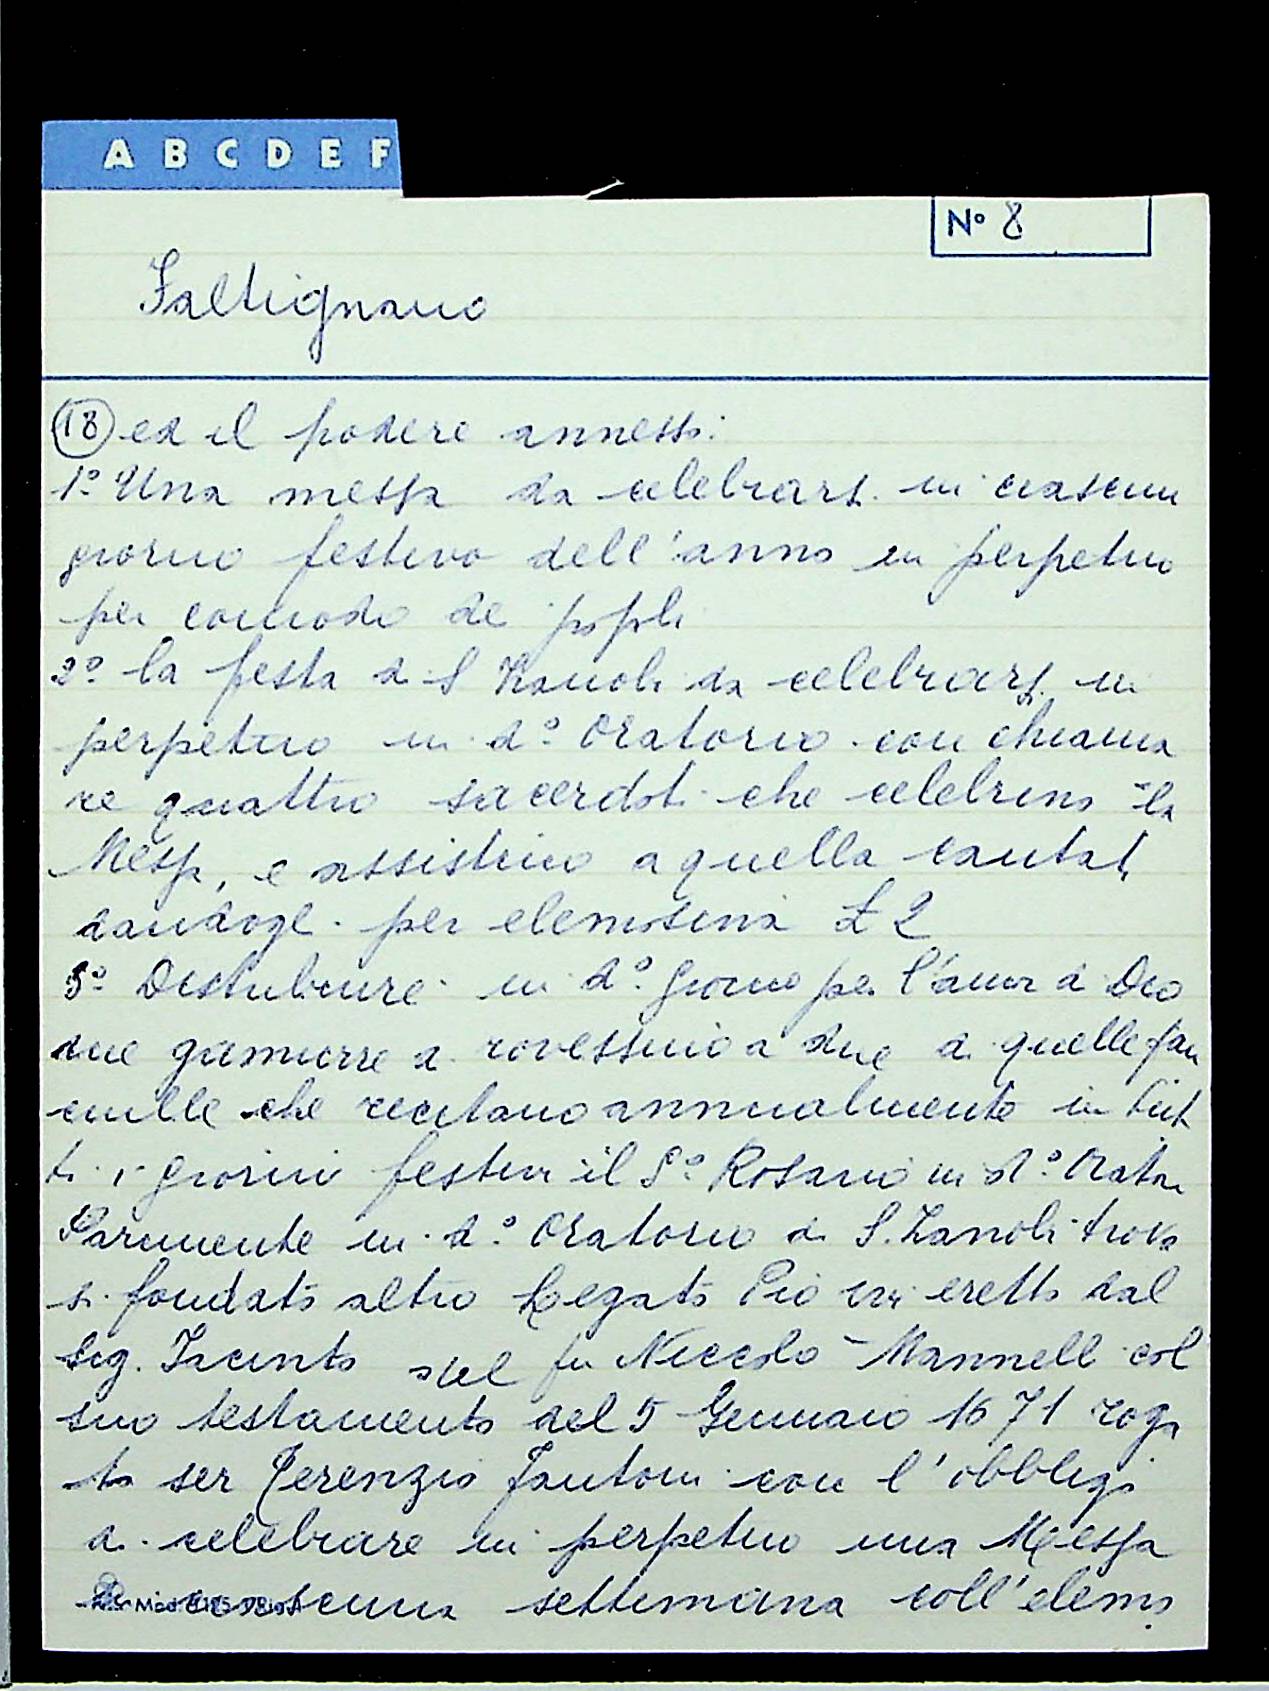 A B C D E F
Nº 8
Faltignano
18 ed il podere annesso:
1º Una messa da celebrarsi in ciascun
giorno festivo dell'anno in perpetuo
per comodo de popoli
2º la festa di S Zanobi da celebrarsi in
perpetuo in dº Oratorio con chiama
re quattro sacerdoti che celebrino la
Messa, e assistino a quella cantata
dandogli per elemosina £ 2
3º Distribuire in dº giorno per l'amor di Dio
due gamurre di rovescino a due di quelle fan
ciulle che recitano annualmente in tut
ti i giorni festivi il Sº Rosario in dº Orator
Parimente in dº Oratorio di S. Zanobi trova
si fondato altro Legato Pio ivi eretto dal
Sig. Jacinto del fu Niccolo Mannelli col
suo testamento del 5 Gennaio 1671 roga
to ser Terenzio Fantoni con l'obbligo
di celebrare in perpetuo una Messa
settimana coll'elemo